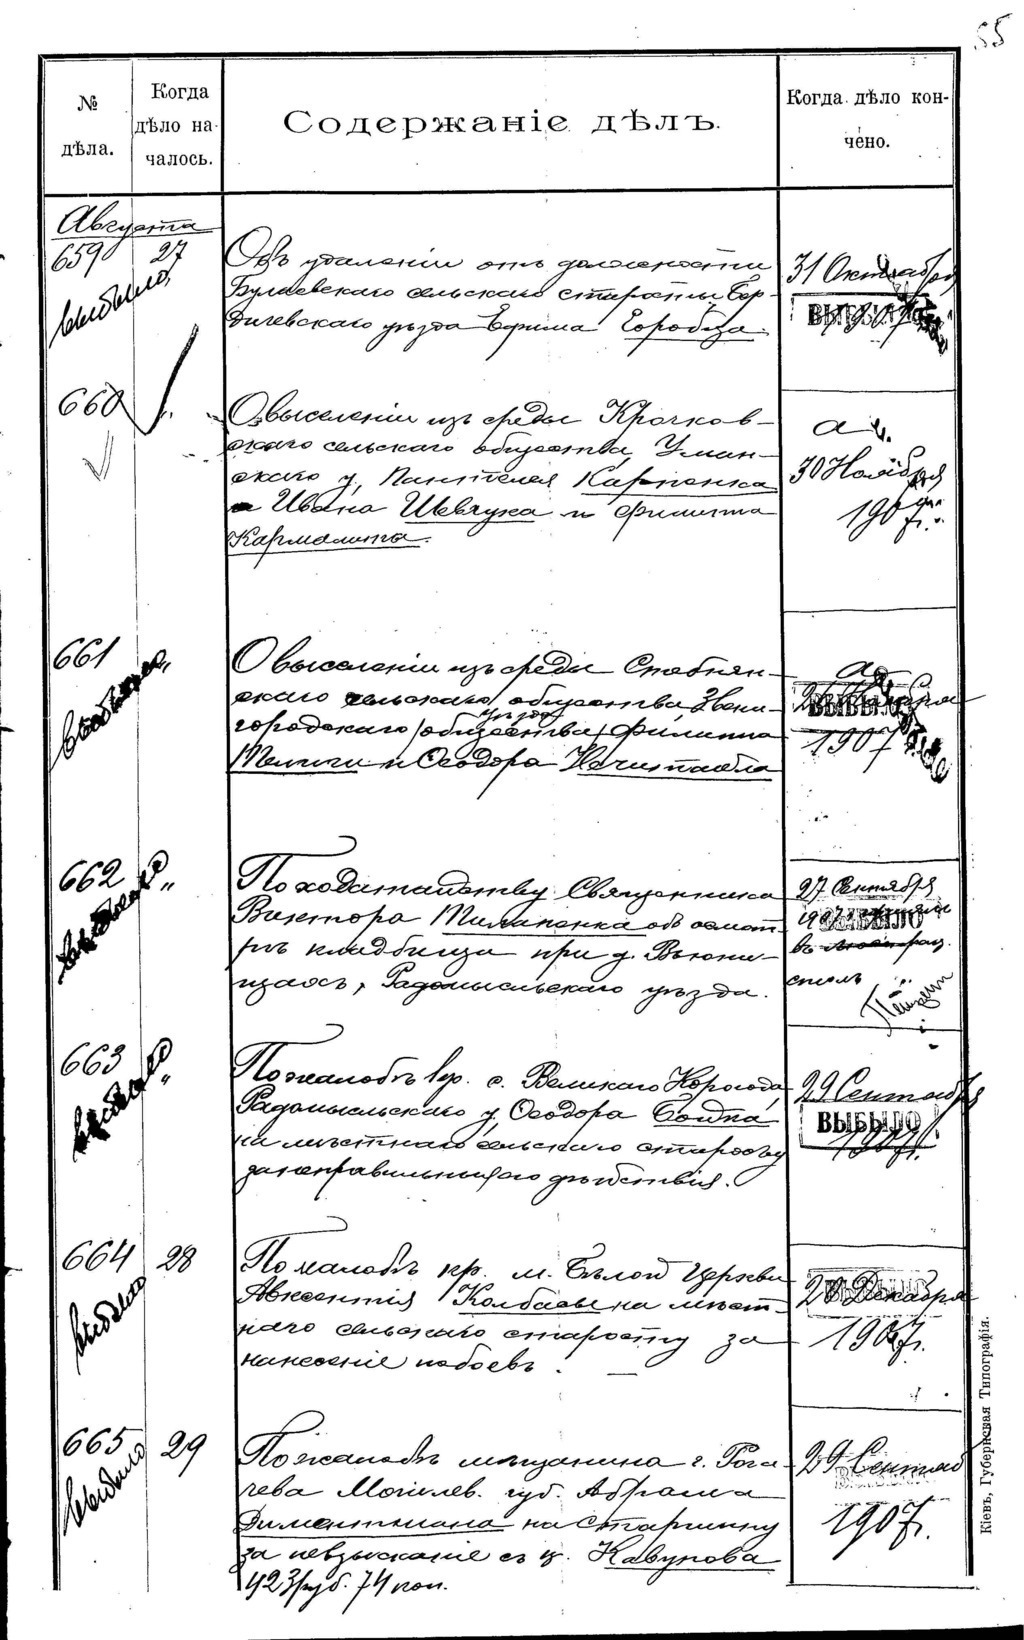 55
№ дѣла.
Когда дѣло на-
чалось.
Содержаніе дѣлъ.
Когда дѣло кон-
чено.
Августа
659 27
выбыло
Объ удаленіи отъ должности
Булаевскаго сельскаго старосты, Бер-
дичевскаго уѣзда Ефима Горобца.
31 Октября
1907
ВЫБЫЛО
660 "
О выселеніи изъ среды Крочков-
скаго сельскаго общества, Уман-
скаго у, Пантелея Карпенка
Ивана Шевчука и Филиппа
Кармалита.
30 Ноября
190
661 "
выбыло
О выселеніи изъ среды Стебнян-
скаго сельскаго общества Звени-
уѣзда
городскаго (общества) Филиппа
и Ѳеодора Нечитайла
ВЫБЫЛО
1907
662 "
выбыло
По ходатайству Священника
Виктора об осмот-
рѣ кладбища при д.
Радомысльскаго уѣзда.
27 Сентября
ВЫБЫЛО
663 "
выбыло
По жалобѣ кр. с. Великаго Корогода,
Радомысльскаго у, Ѳеодора Бойка
на мѣстнаго сельскаго старосту
за неправильныя его дѣйствія.
29 Сентября
ВЫБЫЛО
1907 г.
664 28
выбыло
По жалобѣ кр. м. Бѣлой Церкви
Авксентія Колбасы на мѣст-
наго сельскаго старосту за
нанесеніе побоевъ.
Декабря
1907 г.
665 29
выбыло
По жалобѣ мѣщанина г. Рога-
чева Могилев. губ. Абрама
Диментмана на Старшину
за невзысканіе съ
423 руб. 74 коп.
29 Сентяб
1907 г.
Кіевъ, Губернская Типографія.